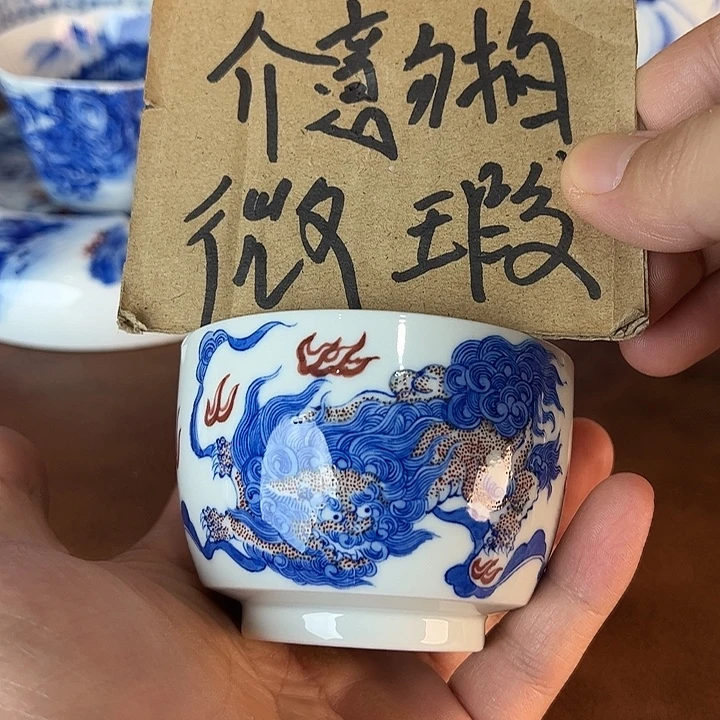 介意勿拍
微瑕